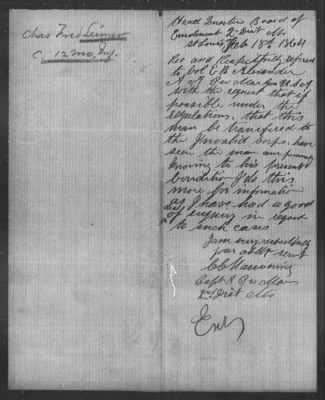 Chas Fred
C. 12 Mo. Inf.
Head Quarters Board of
Enrolment 2 Dist Mo
St Louis Feb 18th 1864
Respectfully referred
to Col E B Alexander
A A Pro Mar Gen U S A
with the request that if
possible under the
regulations, that this
man be transfered to
the Invalid Corps. have
seen the man am
knowing to his present
Condition I do this
more for information
as I have had a good
deal
of enquiry in regard
to such cases
I am very respectfully
your obdt servt
C C Manwaring
Capt & Pro Mar
2nd Dist Mo